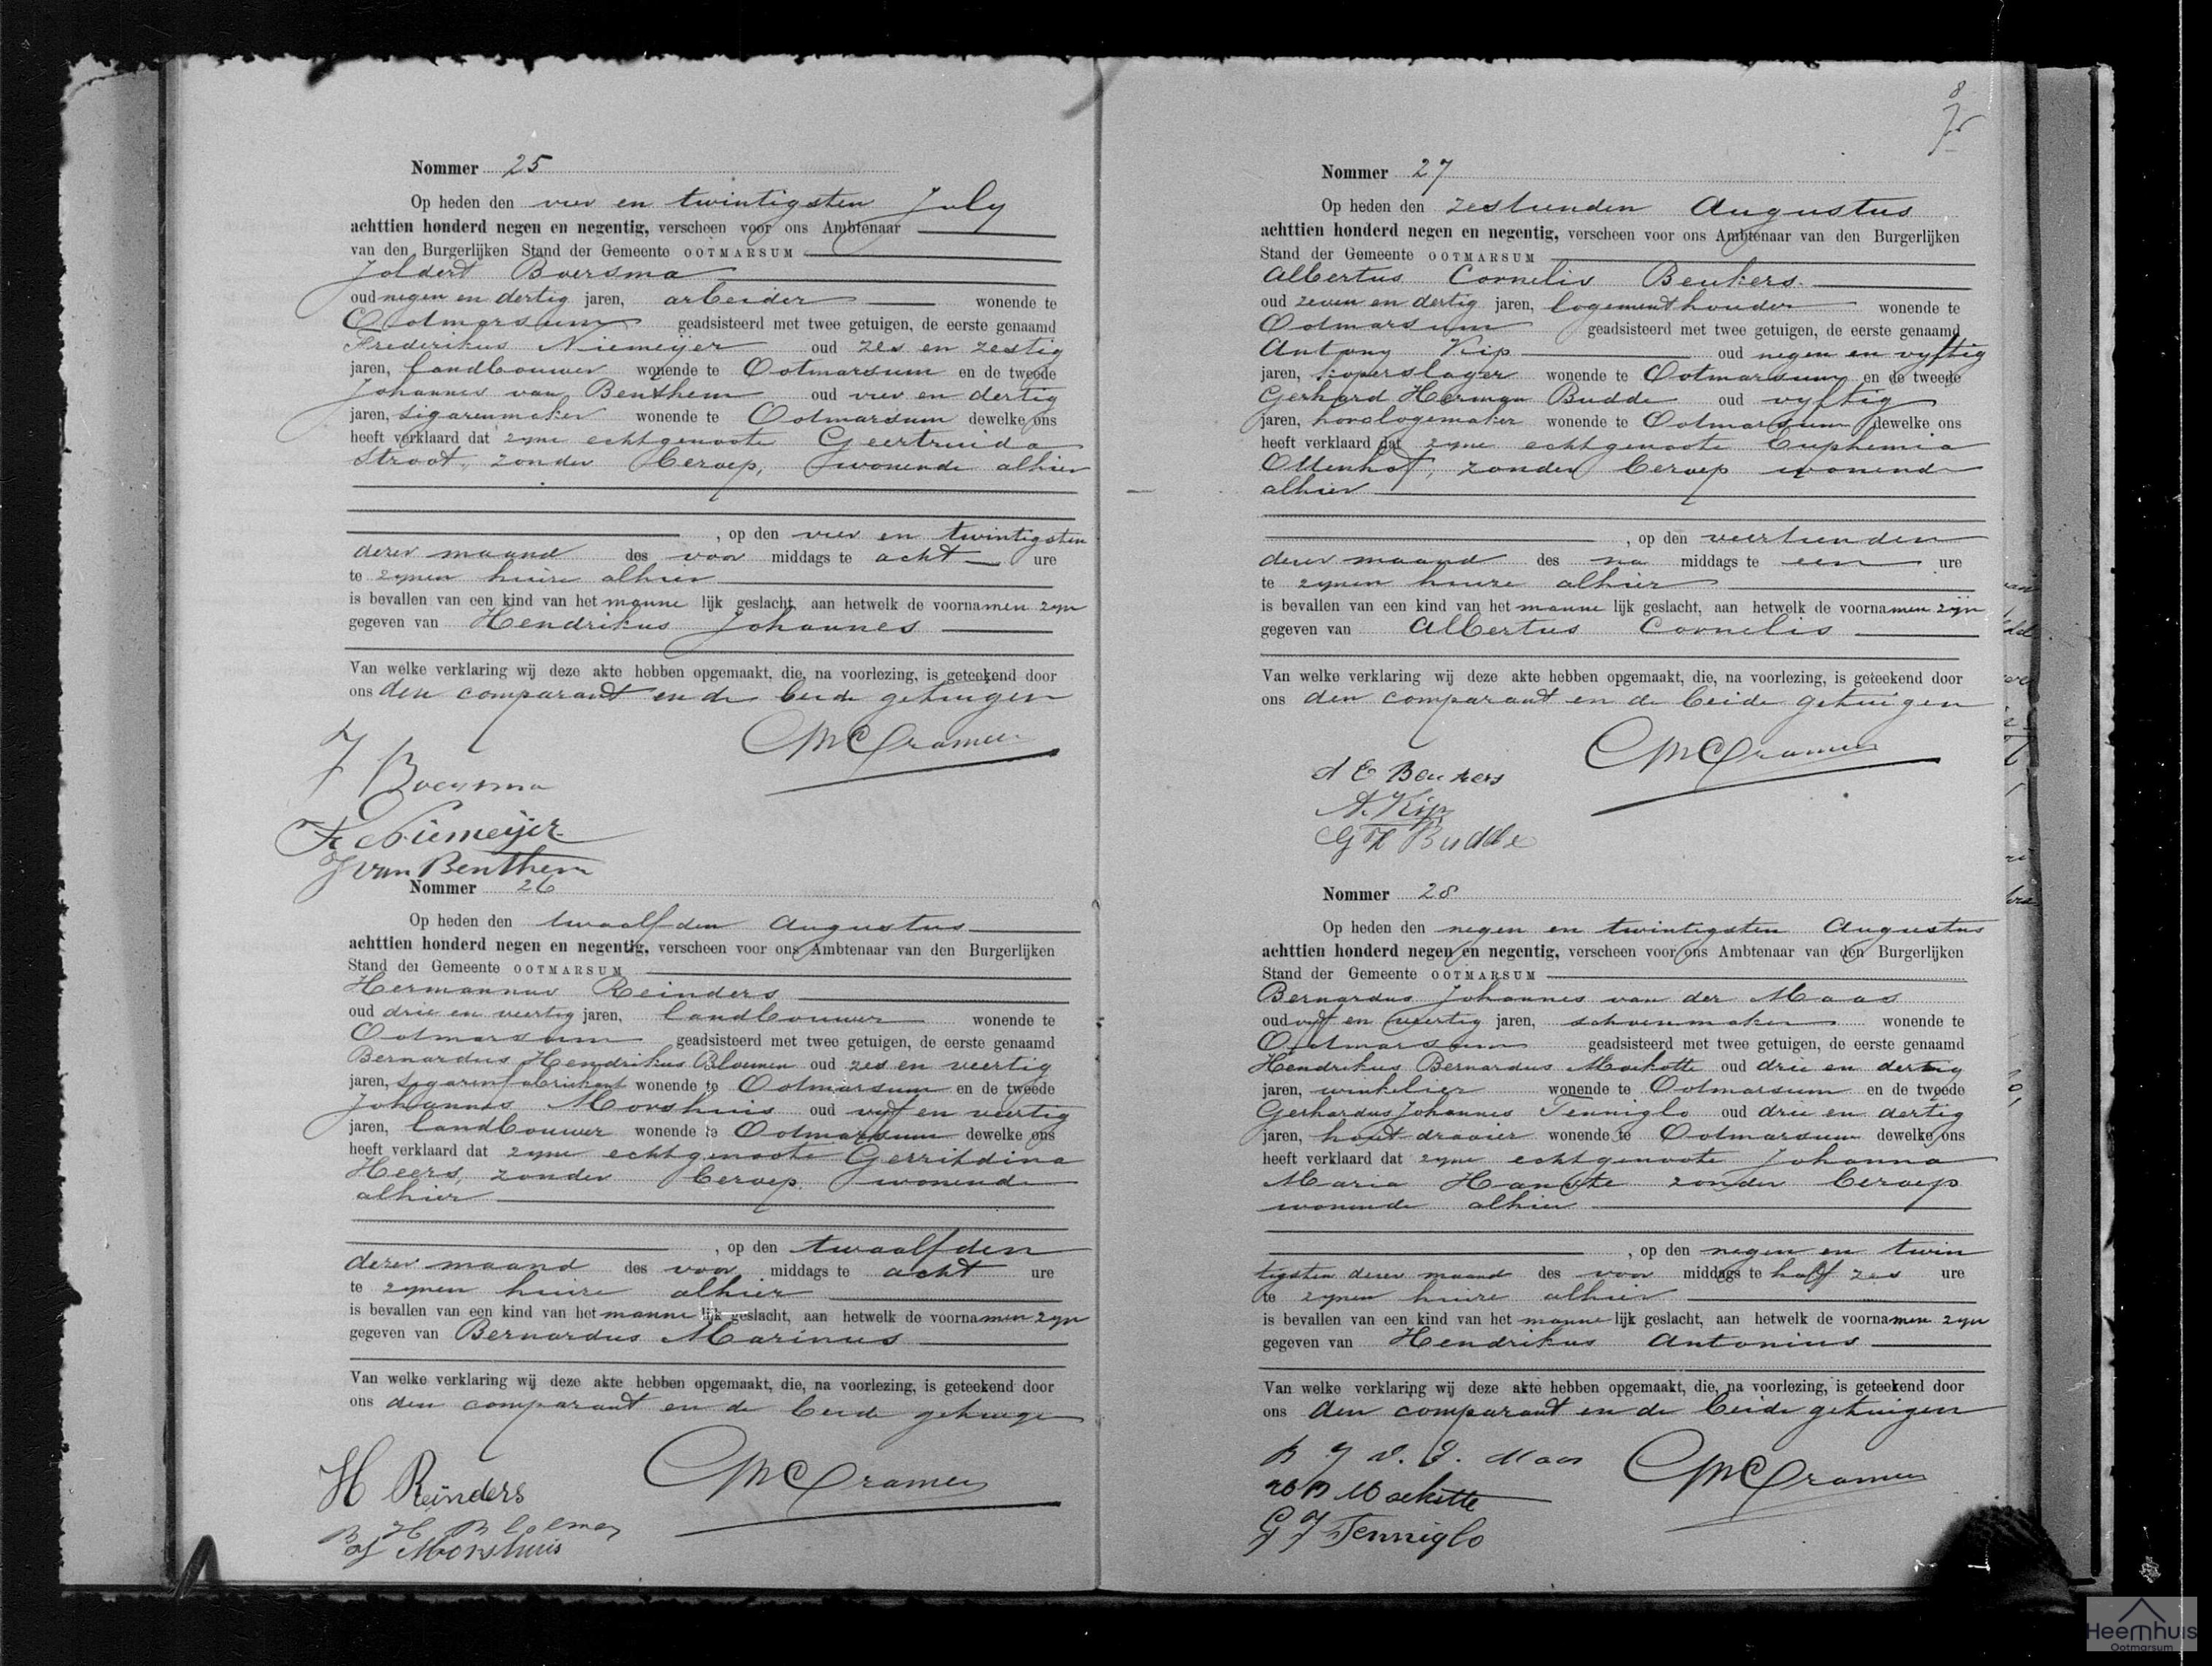 Nommer 25
Op heden den vier en twintigsten July
achttien honderd negen en negentig, verscheen voor ons Ambtenaar
van den Burgerlijken Stand der Gemeente OOTMARSUM
Joldert Boersma
oud negen en dertig jaren, arbeider wonende te
Ootmarsum geadsisteerd met twee getuigen, de eerste genaamd
Frederikus Niemeijer oud zes en zestig
jaren, landbouwer wonende te Ootmarsum en de tweede
Johannes van Benthem oud vier en dertig
jaren, sigarenmaker wonende te Ootmarsum dewelke ons
heeft verklaard dat zyne echtgenoote Geertruida
Stroot, zonder beroep, wonende alhier
, op den vier en twintigsten
dezer maand des voor middags te acht ure
te zynen huize alhier
is bevallen van een kind van het manne lijk geslacht, aan hetwelk de voornamen zyn
gegeven van Hendrikus Johannes
Van welke verklaring wij deze akte hebben opgemaakt, die, na voorlezing, is geteekend door
ons den comparant en de beide getuigen
J Boersma
CMCCramer
Fr Niemeijer
J van Benthem
Nommer 26
Op heden den twaalfden Augustus
achttien honderd negen en negentig, verscheen voor ons Ambtenaar van den Burgerlijken
Stand der Gemeente OOTMARSUM
Hermannus Reinders
oud drie en veertig jaren, landbouwer wonende te
Ootmarsum geadsisteerd met twee getuigen, de eerste genaamd
Bernardus Hendrikus Bloemen oud zes en veertig
jaren, sigarenfabrikant wonende te Ootmarsum en de tweede
Johannes Morshuis oud vyf en veertig
jaren, landbouwer wonende te Ootmarsum dewelke ons
heeft verklaard dat zyne echtgenoote Gerritdina
Heers, zonder beroep, wonende
alhier
, op den twaalfden
dezer maand des voor middags te acht ure
te zynen huize alhier
is bevallen van een kind van het manne lijk geslacht, aan hetwelk de voornamen zyn
gegeven van Bernardus Marinus
Van welke verklaring wij deze akte hebben opgemaakt, die, na voorlezing, is geteekend door
ons den comparant en de beide getuige
H Reinders
CMCCramer
B H Bloemen
Morshuis
8
Nommer 27
Op heden den zestienden Augustus
achttien honderd negen en negentig, verscheen voor ons Ambtenaar van den Burgerlijken
Stand der Gemeente OOTMARSUM
Albertus Cornelis Beukers
oud zeven en dertig jaren, logementhouder wonende te
Ootmarsum geadsisteerd met twee getuigen, de eerste genaamd
Antony Kip oud negen en vyftig
jaren, koperslager wonende te Ootmarsum en de tweede
Gerhard Herman Budde oud vyftig
jaren, horologemaker wonende te Ootmarsum dewelke ons
heeft verklaard dat zyne echtgenoote Euphemia
Ottenhof, zonder beroep wonende
alhier
, op den veertienden
dezer maand des na middags te een ure
te zynen huize alhier
is bevallen van een kind van het manne lijk geslacht, aan hetwelk de voornamen zijn
gegeven van Albertus Cornelis
Van welke verklaring wij deze akte hebben opgemaakt, die, na voorlezing, is geteekend door
ons den comparant en de beide getuigen
A C Beukers
CMCCramer
A. Kip
G H Budde
Nommer 28
Op heden den negen en twintigsten Augustus
achttien honderd negen en negentig, verscheen voor ons Ambtenaar van den Burgerlijken
Stand der Gemeente OOTMARSUM
Bernardus Johannes van der Maas
oud vyf en veertig jaren, schoenmaker wonende te
Ootmarsum geadsisteerd met twee getuigen, de eerste genaamd
Hendrikus Bernardus Moekotte oud drie en dertig
jaren, winkelier wonende te Ootmarsum en de tweede
Gerhardus Johannes Tenniglo oud drie en dertig
jaren, houtdraaier wonende te Ootmarsum dewelke ons
heeft verklaard dat zyne echtgenoote Johanna
Maria zonder beroep
wonende alhier
, op den negen en twin
tigsten dezer maand des voor middags te half zes ure
te zynen huize alhier
is bevallen van een kind van het manne lijk geslacht, aan hetwelk de voornamen zyn
gegeven van Hendrikus Antonius
Van welke verklaring wij deze akte hebben opgemaakt, die, na voorlezing, is geteekend door
ons den comparant en de beide getuigen
B J v. d. Maas
CMCCramer
H B Moekotte
G J Tenniglo
Heemhuis
Ootmarsum